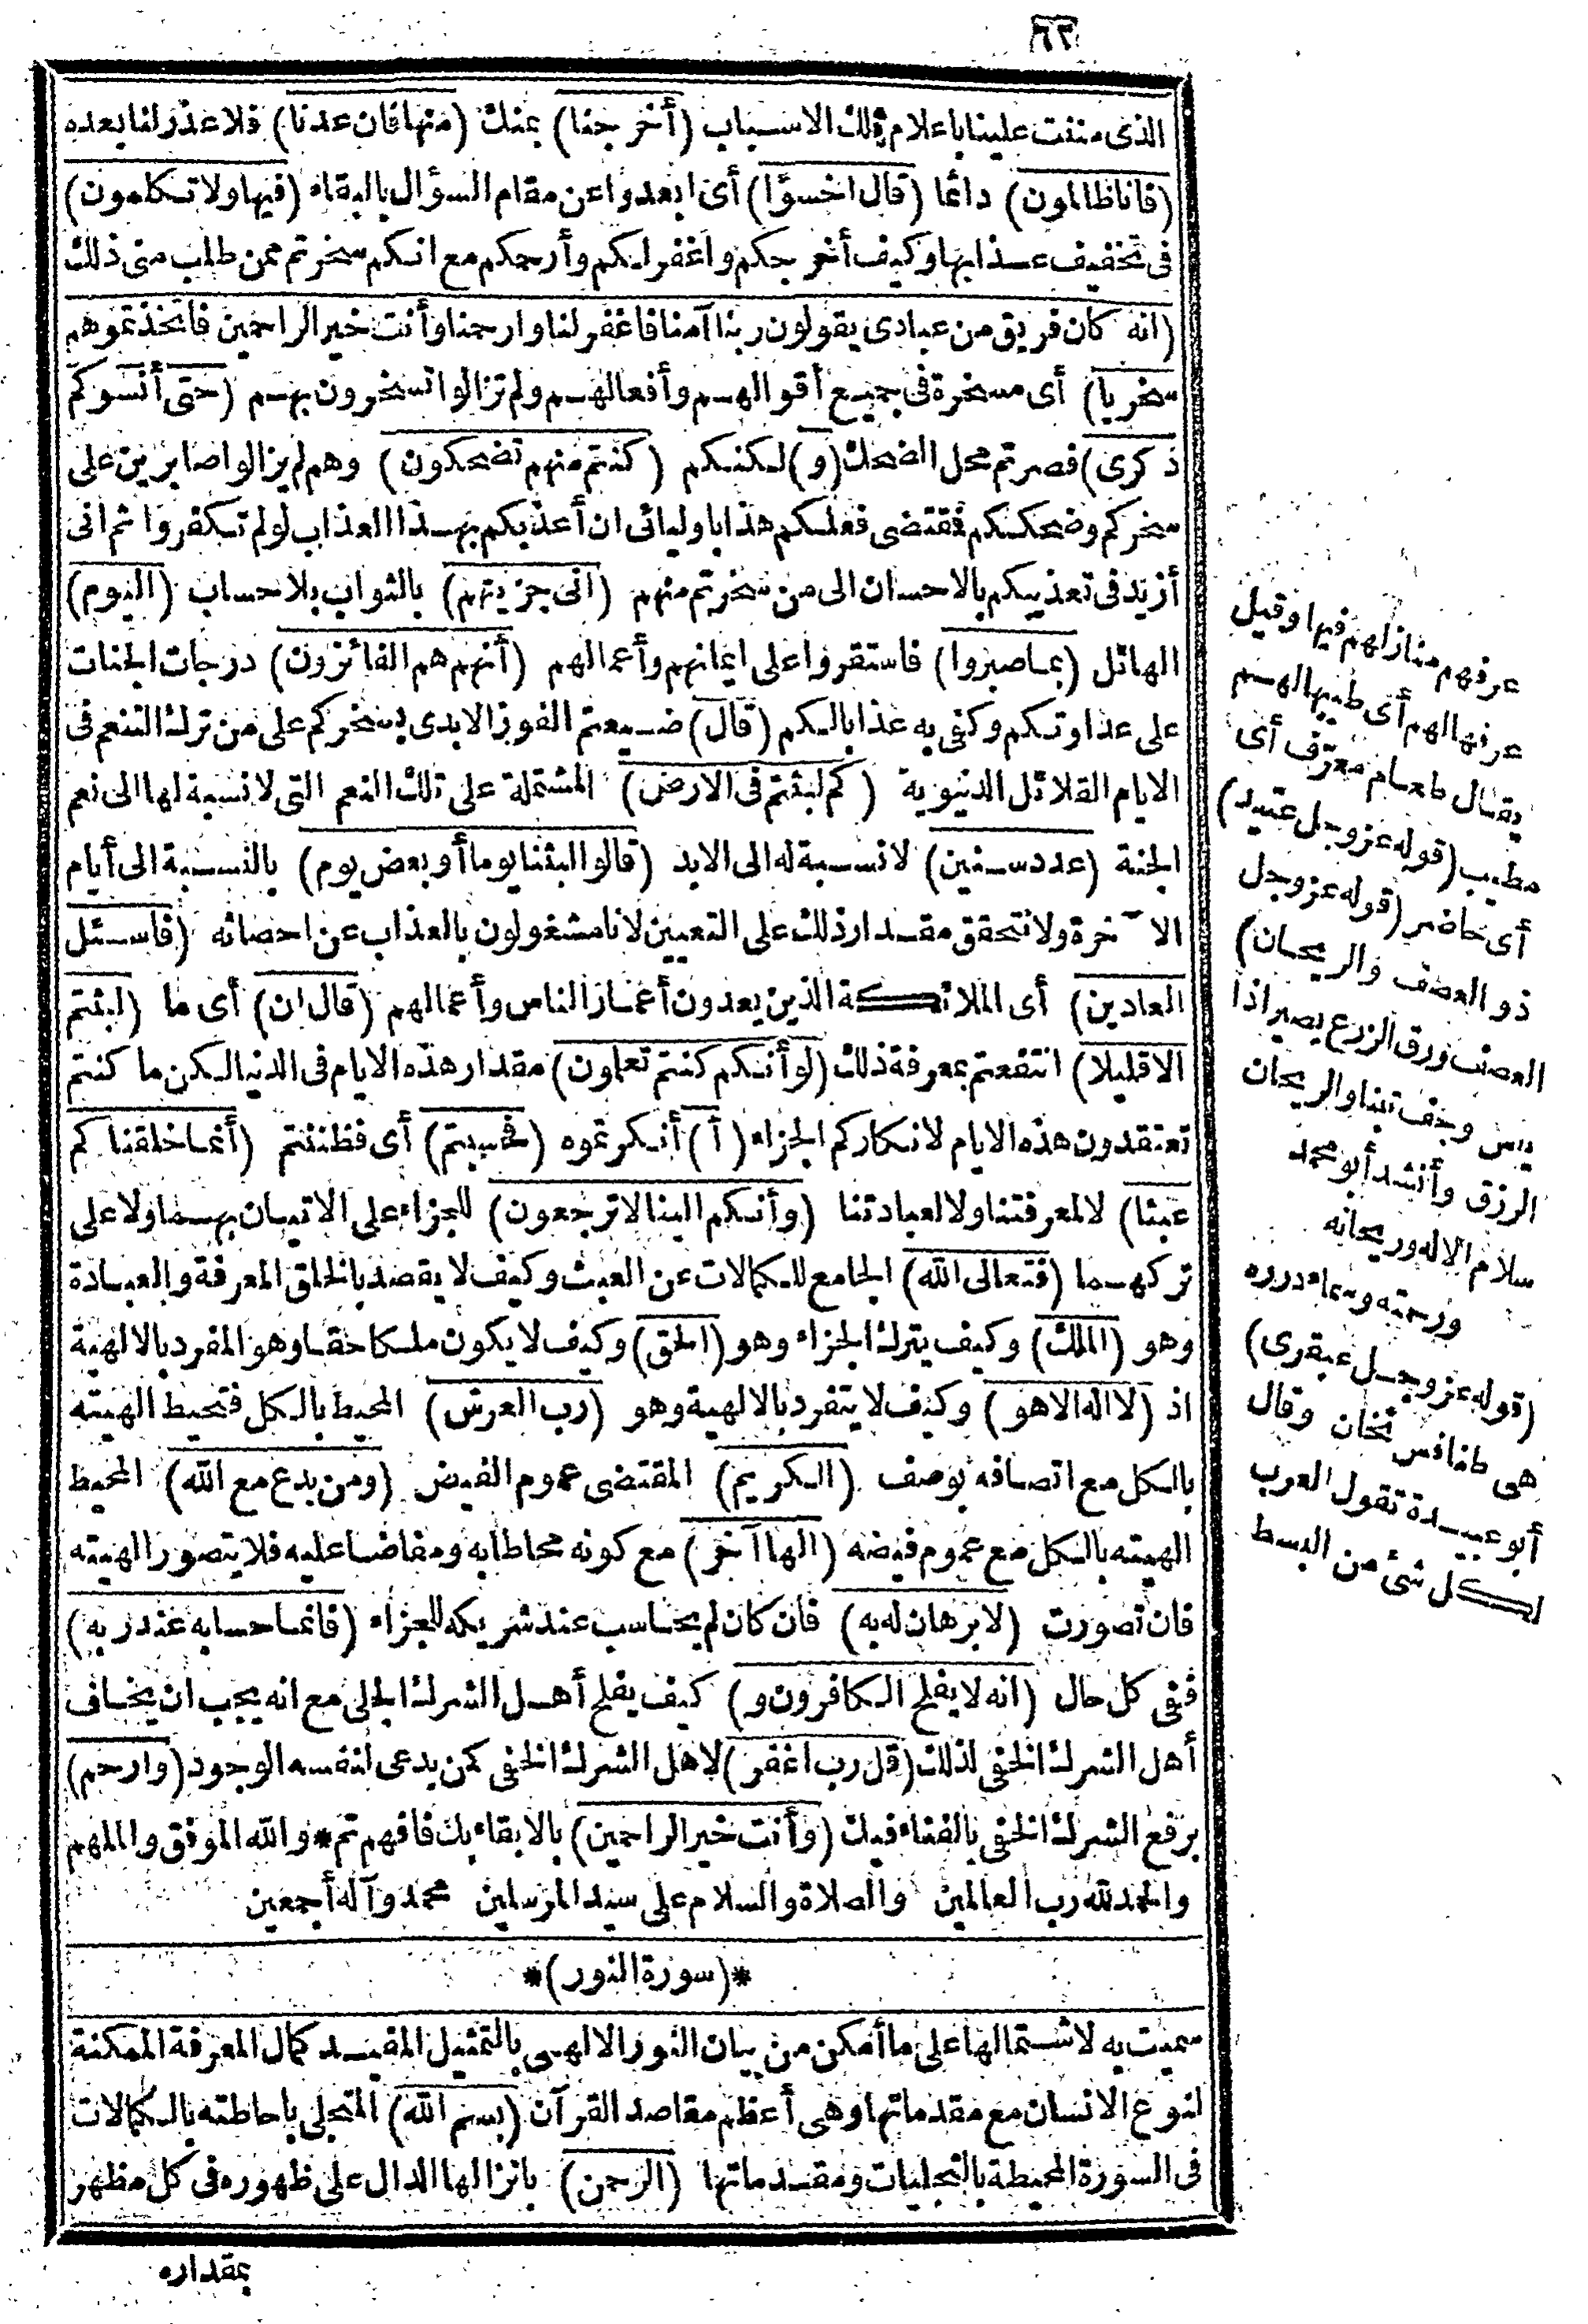 ٦٣
الذى مننت علينا باعلام تلك الاسباب (أخرجنا) بمنك (منها فان عدنا) فلا عذر لنا بعده
(فانا ظالمون) دائما (قال اخسؤا) أى ابعدوا عن مقام السؤال بالبقاء (فيها ولا تكلمون)
فى تخفيف عذابها وكيف أخرجكم واغفر لكم وأرحمكم مع انكم سخرتم ممن طلب منى ذلك
(انه كان فريق من عبادى يقولون ربنا آمنا فاغفر لنا وارحمنا وأنت خير الراحمين فاتخذتموهم
سخريا) أى مسخرة فى جميع أقوالهم وأفعالهم ولم تزالوا تسخرون بهم (حتى أنسوكم
ذكرى) فصرتم محل الضحك (و) لكنكم (كنتم منهم تضحكون) وهم لم يزالوا صابرين على
سخركم وضحككم فقتضى فعلكم هذا باوليائى ان أعذبكم بهذا العذاب لو لم تكفروا ثم انى
أزيد فى تعذيبكم بالاحسان الى من سخرتم منهم (انى جزيتهم) بالثواب بلا حساب (اليوم)
الهائل (بما صبروا) فاستقروا على ايمانهم وأعمالهم (أنهم هم الفائزون) درجات الجنات
على عداوتكم وكفى به عذابا لكم (قال) ضيعتم الفوز الابدى بسخركم على من ترك التنعم فى
الايام القلائل الدنيوية (كم لبثتم فى الارض) المشتملة على تلك النعم التى لا نسبة لها الى نعم
الجنة (عدد سنين) لا نسبة له الى الابد (قالوا لبثنا يوما أو بعض يوم) بالنسبة الى أيام
الآخرة ولا نتحقق مقدار ذلك على التعيين لانا مشغولون بالعذاب عن احصائه (فاسئل
العادين) أى الملائكة الذين يعدون أعمار الناس وأعمالهم (قال ان) أى ما (لبثتم
الا قليلا) انتفعتم بمعرفة ذلك (لو أنكم كنتم تعلمون) مقدار هذه الايام فى الدنيا لكن ما كنتم
تعتقدون هذه الايام لانكاركم الجزاء (أ) أنكرتموه (فحسبتم) أى فظننتم (أنما خلقناكم
عبثا) لا لمعرفتنا ولا لعبادتنا (وأنكم الينا لا ترجعون) للجزاء على الاتيان بهما ولا على
تركهما (فتعالى الله) الجامع للكمالات عن العبث وكيف لا يقصد بالخلق المعرفة والعبادة
وهو (الملك) وكيف يترك الجزاء وهو (الحق) وكيف لا يكون ملكا حقا وهو المفرد بالالهية
اذ (لا اله الا هو) وكيف لا يتفرد بالالهية وهو (رب العرش) المحيط بالكل فتحيط الهيته
بالكل مع اتصافه بوصف (الكريم) المقتضى عموم الفيض (ومن يدع مع الله) المحيط
الهيته بالكل مع عموم فيضه (الها آخر) مع كونه محاطا به ومفاضا عليه فلا يتصور الهيته
فان تصورت (لا برهان له به) فان كان لم يحاسب عند شريكه للجزاء (فانما حسابه عند ربه)
ففى كل حال (انه لا يفلح الكافرون و) كيف يفلح أهل الشرك الجلى مع انه يجب ان يخاف
أهل الشرك الخفى لذلك (قل رب اغفر) لاهل الشرك الخفى كمن يدعى لنفسه الوجود (وارحم)
برفع الشرك الخفى بالفناء فيك (وأنت خير الراحمين) بالابقاء بك فافهم تم * والله الموفق والملهم
والحمد لله رب العالمين والصلاة والسلام على سيد المرسلين محمد وآله أجمعين
*(سورة النور)*
سميت به لاشتمالها على ما أمكن من بيان النور الالهى بالتمثيل المفيد كمال المعرفة الممكنة
لنوع الانسان مع مقدماتها وهى أعظم مقاصد القرآن (بسم الله) المتجلى باحاطته بالكمالات
فى السورة المحيطة بالتجليات ومقدماتها (الرحمن) بانزالها الدال على ظهوره فى كل مظهر
بمقداره
عرفهم منازلهم فيها وقيل
عرفها لهم أى طيبها لهم
يقال طعام معرّف أى
مطيب (قوله عز وجل عتيد)
أى حاضر (قوله عز وجل
ذو العصف والريحان)
العصف ورق الزرع يصير اذا
يبس وجف تبنا والريحان
الرزق وأنشد أبو محمد
سلام الاله وريحانه
ورحمته وسماء درره
(قوله عز وجل عبقرى)
هى طنافس ثخان وقال
أبو عبيدة تقول العرب
لكل شئ من البسط